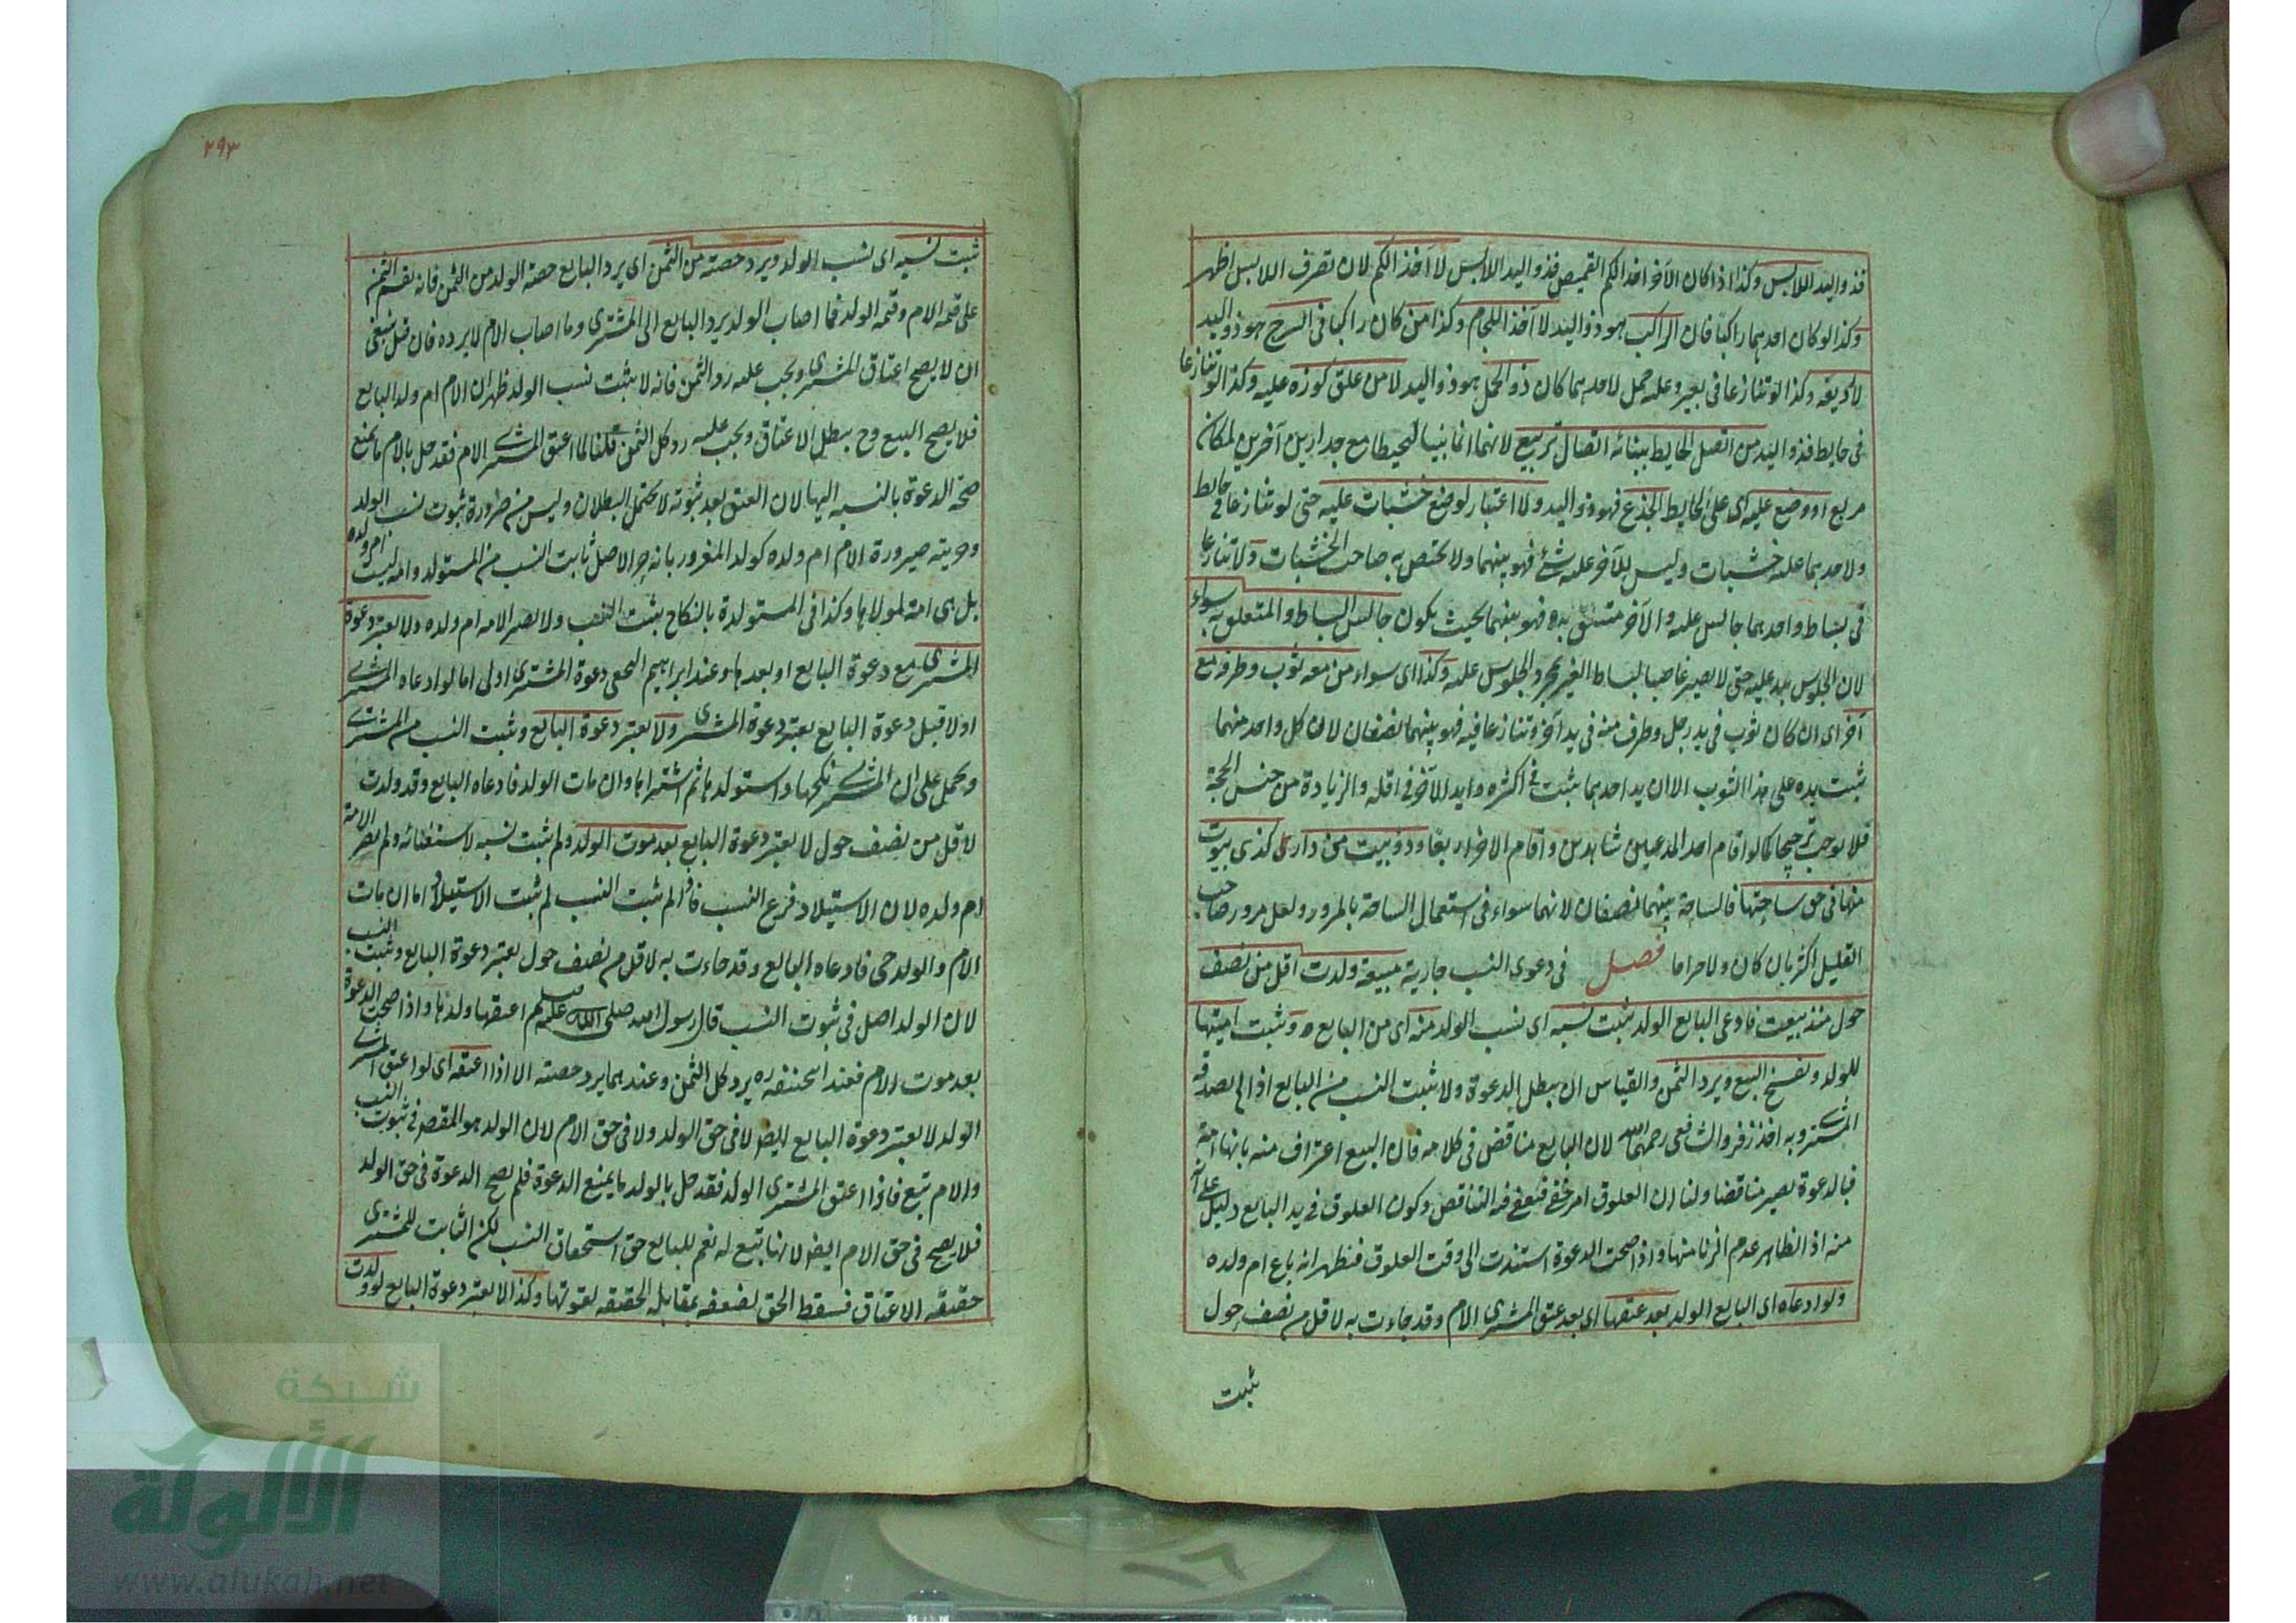 فذو اليد اللابس وكذا اذا كان الآخر اخذ الكم القميص فذو اليد اللابس لا آخذ الكم لان تصرف اللابس اظهر
وكذا لو كان احدهما راكبا فان الراكب هو ذو اليد لا آخذ اللجام وكذا من كان راكبا في السرج هو ذو اليد
لا رديفه وكذا لو تنازعا في بعير وعليه حمل لاحدهما كان ذو الحمل هو ذو اليد لا من علق كوزه عليه وكذا لو تنازعا
في حايط فذو اليد من اتصل الحايط ببنائه اتصال تربيع لانهما انما بنيا ليحيطا مع جدارين آخرين لمكان
مربع او وضع عليه اى على الحايط الجذع فهو ذو اليد ولا اعتبار لوضع خشبات عليه حتى لو تنازعا في حايط
ولاحدهما عليه خشبات وليس للآخر عليه شئ فهو بينهما ولا يختص به صاحب الخشبات ولو تنازعا
في بساط واحدهما جالس عليه والآخر متعلق به فهو بينهما بحيث يكون جالس البساط والمتعلق به سواء
لان الجلوس ليد عليه حتى لا يصير غاصبا لبساط الغير بمجرد الجلوس عليه وكذا اى سواء من معه ثوب وطرفه مع
آخر اى ان كان ثوب في يد رجل وطرف منه في يد آخر وتنازعا فيه فهو بينهما نصفان لان كل واحد منهما
يثبت يده على هذا الثوب الا ان يد احدهما يثبت في اكثره ويد الآخر في اقله والزيادة من جنس الحجة
فلا يوجب ترجيحا كما لو اقام احد المدعيين شاهدين واقام الاخر اربعا وذو بيت من دار كذى بيوت
منها في حق ساحتها فالساحة بينهما نصفان لانهما سواء في استعمال الساحة بالمرور ولعل مرور صاحب
القليل اكثر بان كان ولاجا فصل في دعوى النسب جارية مبيعة ولدت اقل من نصف
حول منذ بيعت فادعى البايع الولد يثبت نسبه اى نسب الولد منه اى من البايع وتثبت اميتها
للولد ويفسخ البيع ويرد الثمن والقياس ان يبطل الدعوة ولا يثبت النسب من البايع اذا لم يصدقه
المشترى وبه اخذ زفر والشافعى رحمهما الله لان البايع مناقض في كلامه فان البيع اعتراف منه بانها امة
فبالدعوة يصير مناقضا ولنا ان العلوق امر خفى فيعفى فيه التناقض وكون العلوق في يد البايع دليل على انه
منه اذ الظاهر عدم الزنا منها واذا صحت الدعوة استندت الى وقت العلوق فيظهر انه باع ام ولده
ولو ادعاه اى البايع الولد بعد عتقها اى بعد عتق المشترى الام وقد جاءت به لاقل من نصف حول
ثبت
٢٩٣
ثبت نسبه اى نسب الولد ويرد حصته من الثمن اى يرد البايع حصة الولد من الثمن فانه يقسم الثمن
على قيمة الام وقيمة الولد فما اصاب الولد يرد البايع الى المشترى وما اصاب الام لا يرده فان قيل ينبغى
ان لا يصح اعتاق المشترى ويجب عليه رد الثمن فانه لا يثبت نسب الولد ظهر ان الام ام ولد البايع
فلا يصح البيع وح يبطل الاعتاق ويجب عليه رد كل الثمن قلنا لما اعتق المشترى الام فقد حل بالام ما يمنع
صحة الدعوة بالنسبه اليها لان العتق بعد ثبوته لا يحتمل البطلان وليس من ضرورة ثبوت نسب الولد
وحريته صيرورة الام ام ولده كولد المغرور بانه حر الاصل ثابت النسب من المستولد وامه ليست ام ولده
بل هى امة لمولاها وكذا في المستولدة بالنكاح يثبت النسب ولا تصير الامه ام ولده ولا يعتبر دعوة
المشترى مع دعوة البايع او بعدها وعند ابراهيم النخعى دعوة المشترى اولى اما لو ادعاه المشترى
اولا قبل دعوة البايع يعتبر دعوة المشترى ولا يعتبر دعوة البايع ويثبت النسب من المشترى
ويحمل على ان المشترى نكحها واستولدها ثم اشتراها وان مات الولد فادعاه البايع وقد ولدت
لاقل من نصف حول لا يعتبر دعوة البايع بعد موت الولد ولم يثبت نسبه لاستغنائه ولم تصر الامة
ام ولده لان الاستيلاد فرع النسب فاذا لم يثبت النسب لم يثبت الاستيلاد اما ان مات
الام والولد حى فادعاه البايع وقد جاءت به لاقل من نصف حول يعتبر دعوة البايع ويثبت النسب
لان الولد اصل في ثبوت النسب قال رسول الله صلى الله عليه وسلم اعتقها ولدها واذا صحت الدعوة
بعد موت الام فعند ابى حنيفه ره يرد كل الثمن وعندهما يرد حصته الا اذا اعتقه اى لو اعتق المشترى
الولد لا يعتبر دعوة البايع ايضا لا في حق الولد ولا في حق الام لان الولد هو المقصر في ثبوت النسب
والام تبع فاذا اعتق المشترى الولد فقد حل بالولد ما يمنع الدعوة فلم يصح الدعوة في حق الولد
فلا يصح في حق الام ايضا لانها تبع له نعم للبايع حق استحقاق النسب لكن الثابت للمشترى
حقيقة الاعتاق فسقط الحق لضعفه بمقابلة الحقيقه لقوتها وكذا لا يعتبر دعوة البايع لو ولدت
شبكة
الألوكة
www.alukah.net